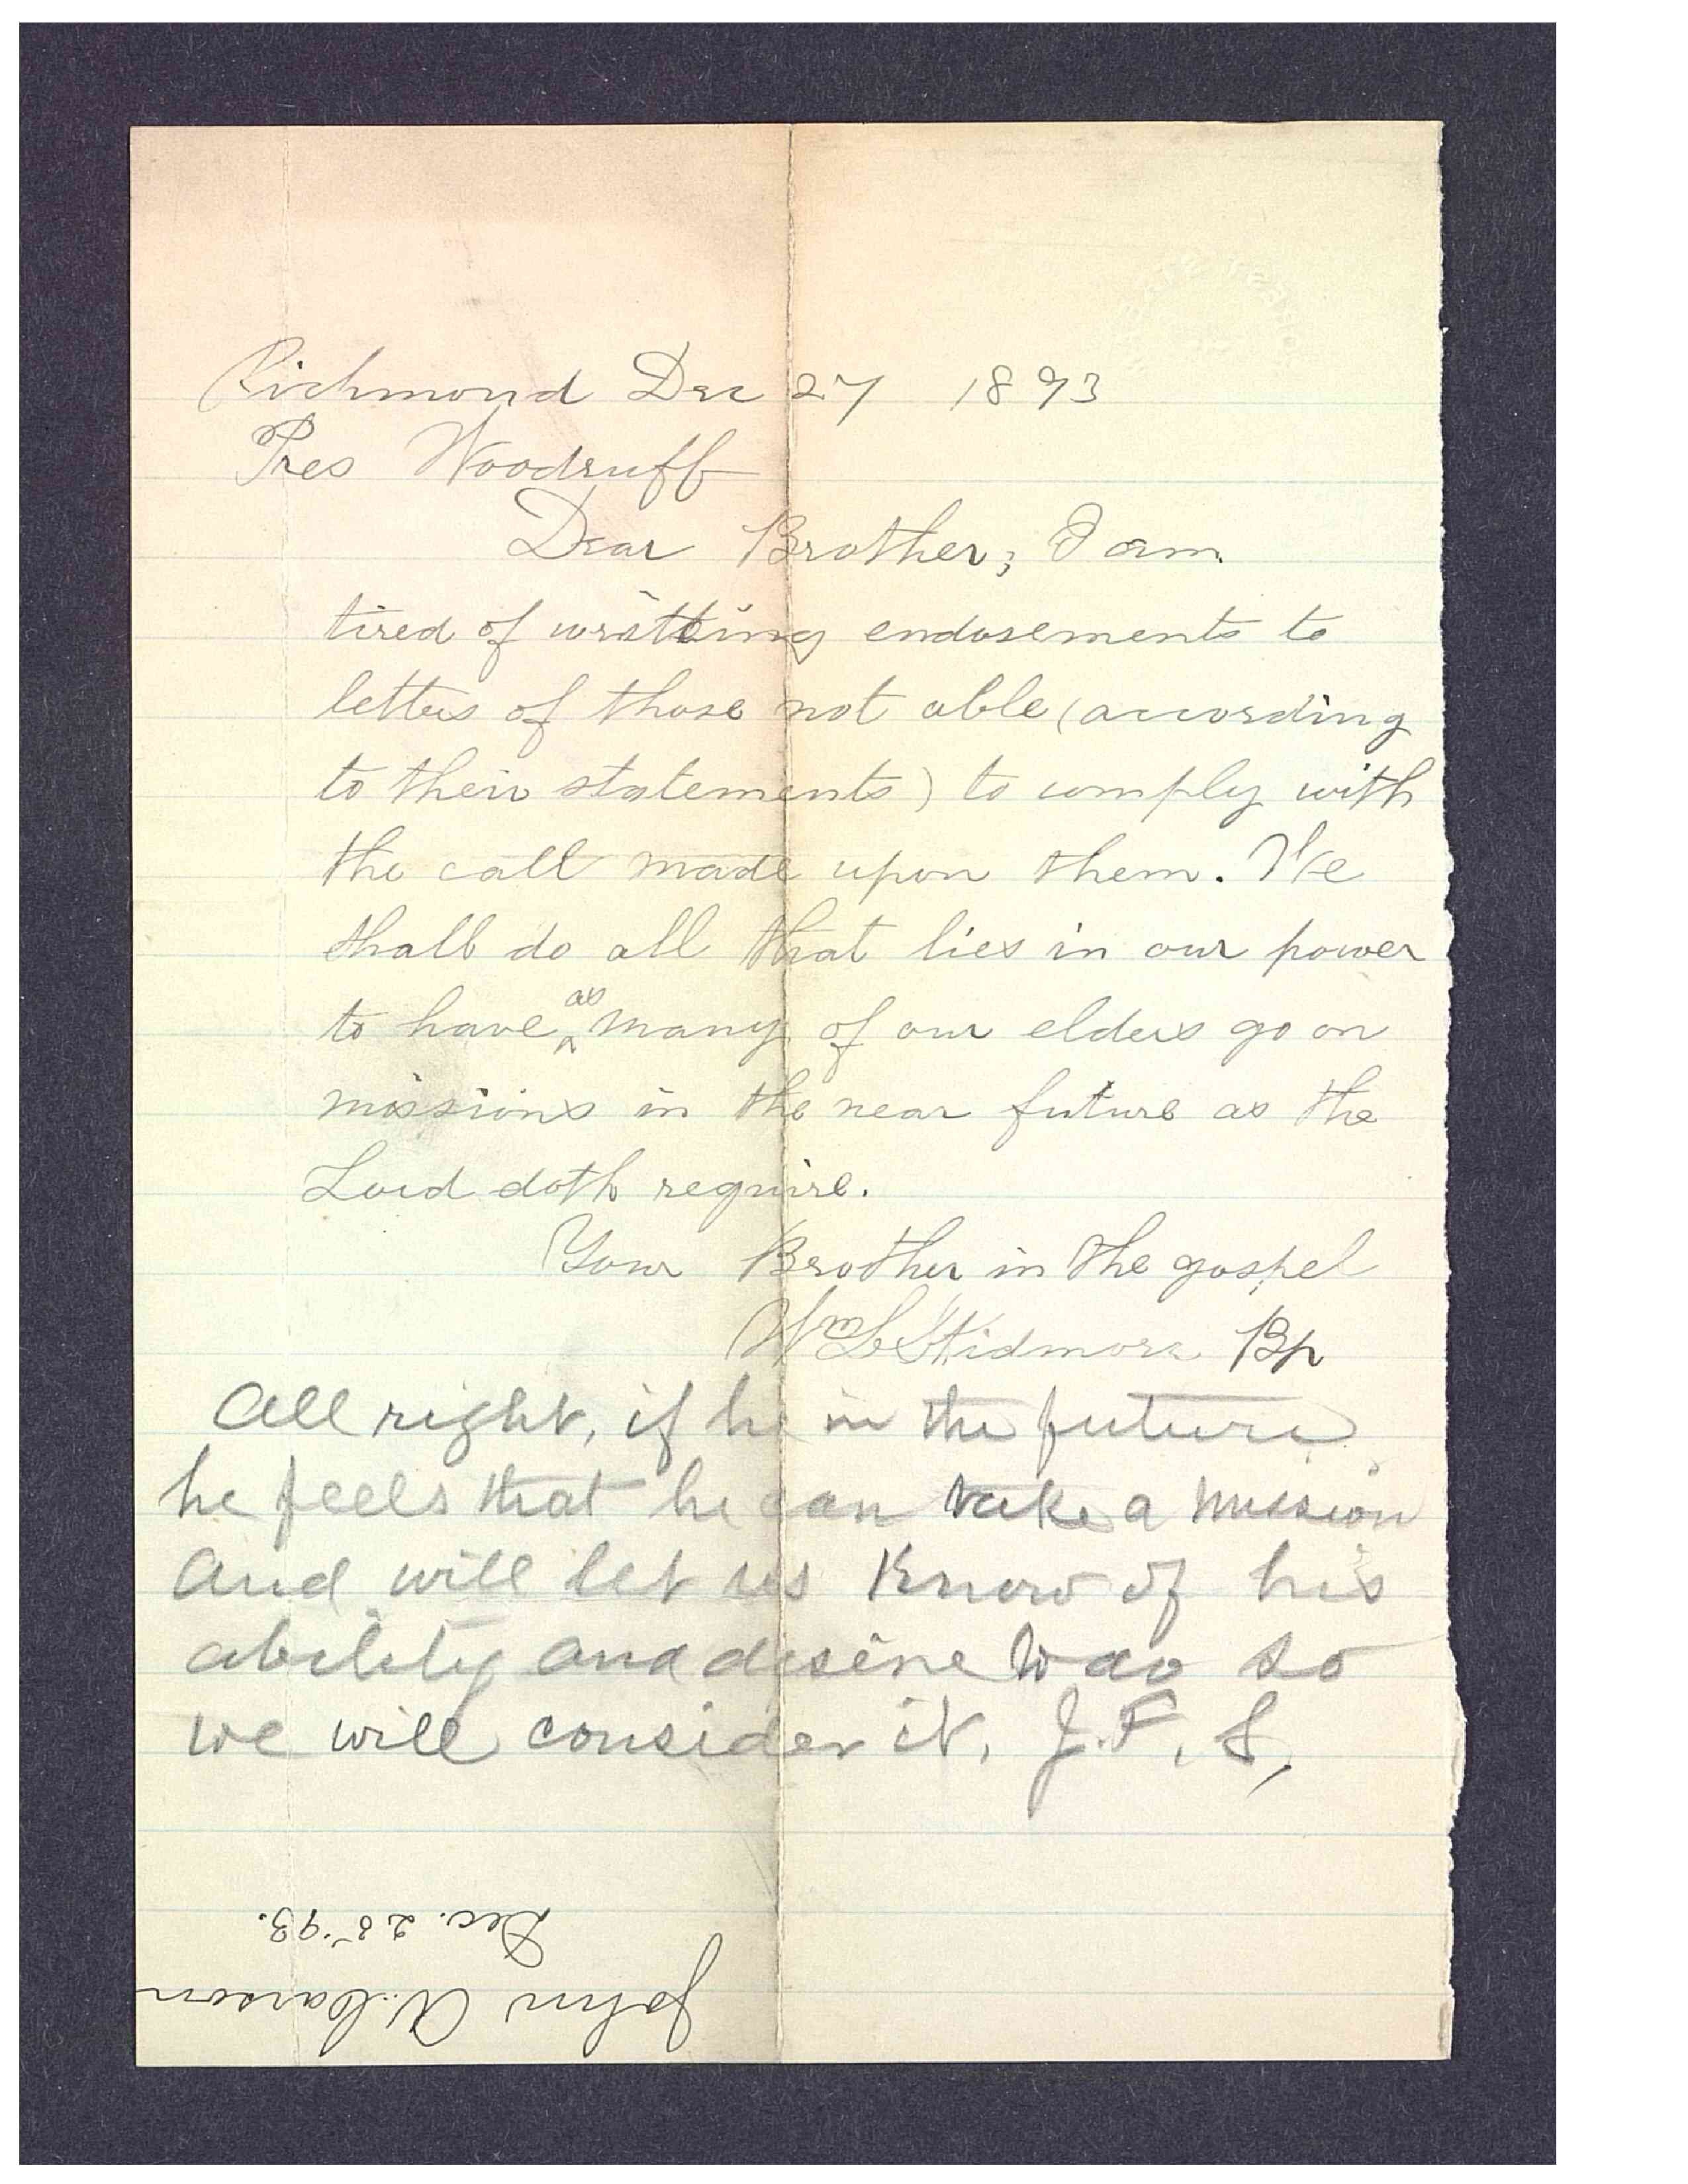 Richmond Dec 27 1893
Pres Woodruff
Dear Brother; I am
tired of writting endosements to
letters of those not able (according
to their statements) to comply with
the call made upon them. We
shall do all that lies in our power
to have as many of our elders go on
missions in the near future as the
Lord doth require.
Your Brother in the gospel
Wm L Skidmore Bp
All right, if he in the future
he feels that he can take a mission
and will let us know of his
ability and desire to do so
we will consider it. J. F. S,
Dec. 25 '93.
John A. Carson